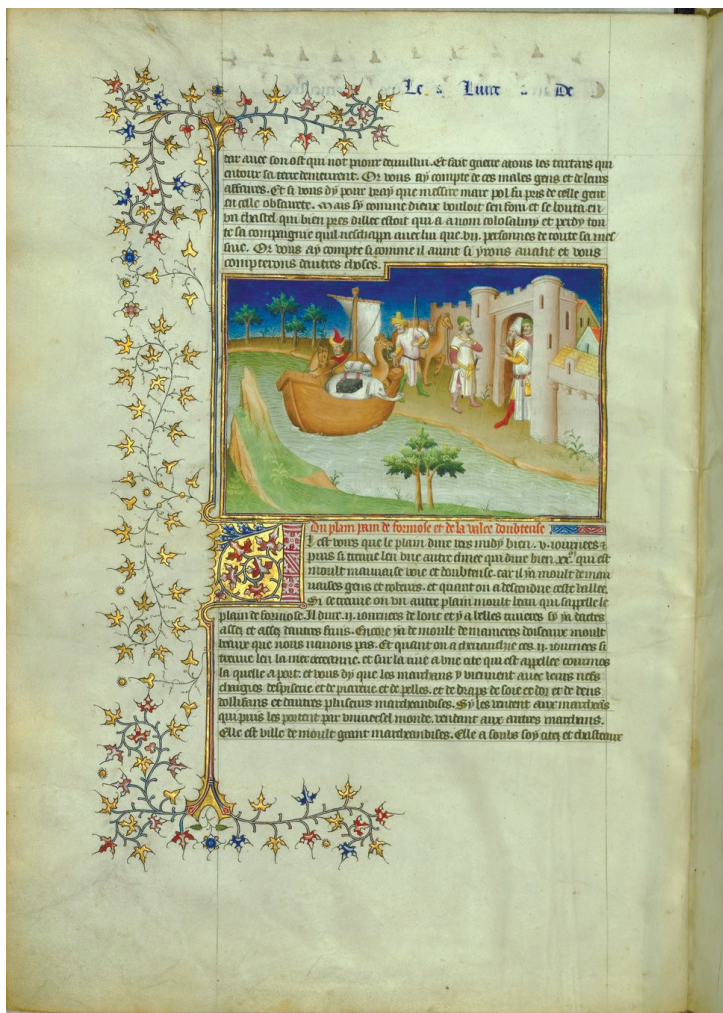 Le Livre De
tar avec son ost qui not pouoir deuillui. Et fait guerre a tous les tartars qui
entour sa terre demeurent. Or vous ay compte de ces males gens et de leurs
affaires. Et si vous dy pour vray que messire marc pol fu pris de celle gent
en celle obscurete. Mais sy comme dieux vouloit sen foui et se bouta en
vn chastel qui bien pres dillec estoit qui a a nom colosalmy et perdy tou
te sa compagnie quil neschappa auec lui que .vii. personnes de toute sa mes
nie. Or vous ay compte si comme il auint si yrons auant et vous
compterons dautres choses.
Du plain de formose et de la valee doubteuse
Il est voirs que le plain dure vers midy bien .v. iournees et
puis si treuue len vne autre clinee qui dure bien .xx. qui est
moult mauuaise voie et doubteuse. car il ya moult de mau
uaises gens et robeurs. et quant on a descendue ceste vallee.
Si se treuue on vn autre plain moult beau qui sappelle le
plain de formose. Il dure .ii. iournees de lonc et y a belles riuieres sy ya dactes
asses et asses dautres fruis. Encore ya de moult de manieres doiseaux moult
beaux que nous nauons pas. Et quant on a cheuauchie ces .ii. iournees si
treuue len la mer occeanne. et sur la riue a vne cite qui est appellee cormos
la quelle a port. et vous dy que les marchans y viennent auec leurs nefs
chargies despiserie et de pierrerie et de pelles. et de draps de soie et dor et de dens
dolliffans et dautres pluseurs marchandises. Sy les vendent aux marchans
qui puis les portent par vniuersel monde. vendant aux autres marchans.
Elle est ville de moult grant marchandises. Elle a soubs soy citez et chasteaux